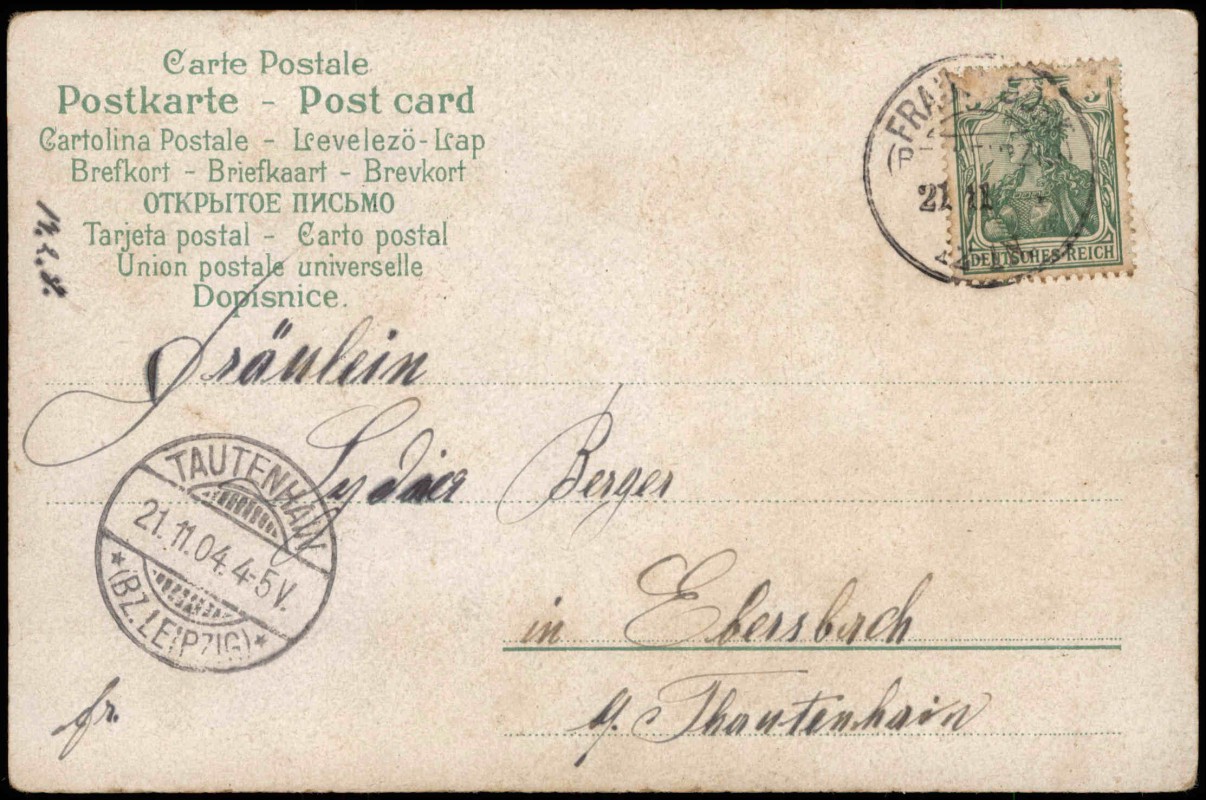 Carte Postale
Postkarte - Post card
Cartolina Postale - Levelező-Lap
Brefkort - Briefkaart - Brevkort
ОТКРЫТОЕ ПИСЬМО
Tarjeta postal - Carto postal
Union postale universelle
Dopisnice.
21 11
DEUTSCHES REICH
Fräulein
Berger
TAUTENHAIN
21.11.04.4-5V.
*(BZ.LEIPZIG)*
in Ebersbach
Thautenhain
fr.